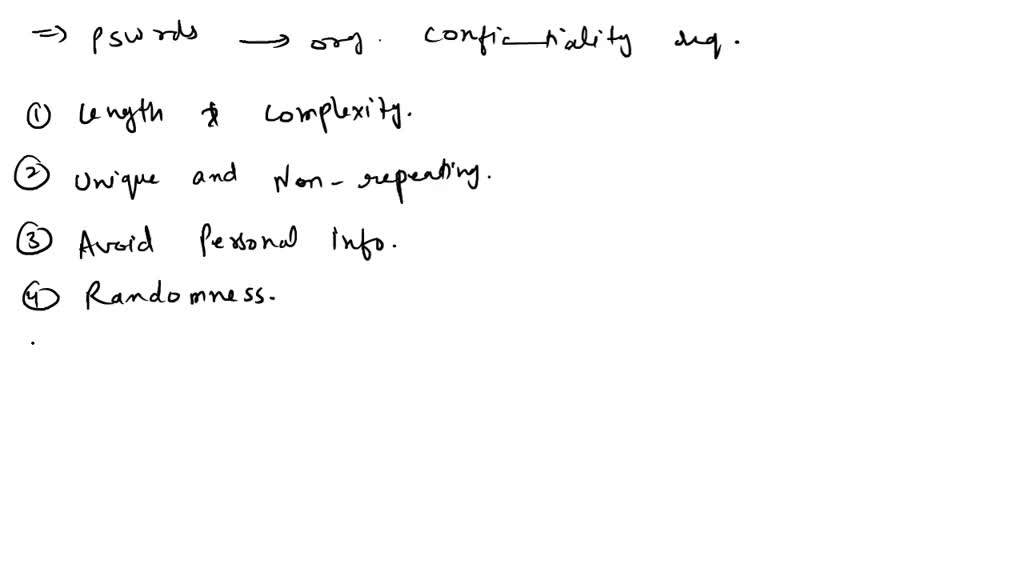 => pswrds → org. confictiality req.
① Length & complexity.
② Unique and Non-repeating.
③ Avoid Personal Info.
④ Randomness.
.